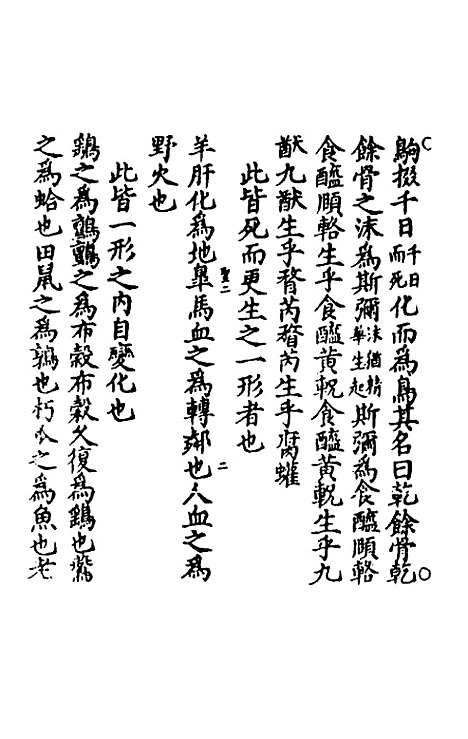 駒掇千日千日而死化而爲鳥其名曰乾餘骨乾
餘骨之沫爲斯彌沫猶精華生起斯彌爲食醯頤輅
食醯頤輅生乎食醯黄軦食醯黄軦生乎九
猷九猷生乎瞀芮瞀芮生乎腐蠸
此皆死而更生之一形者也
羊肝化爲地臯馬血之爲轉鄰也人血之爲
野火也
此皆一形之内自變化也
鷂之爲鸇鸇之爲布穀布穀久復爲鷂也鷰
之爲蛤也田鼠之爲鶉也朽瓜之爲魚也老
聖二
二